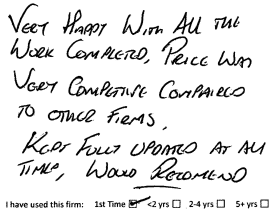 Very Happy With All the
Work Completed, Price Was
Very Competive Compaired
to other Firms,
Kept Fully updated at all
Times, Would Recomend
I have used this firm: 1st Time ☑ <2 yrs ☐ 2-4 yrs ☐ 5+ yrs ☐